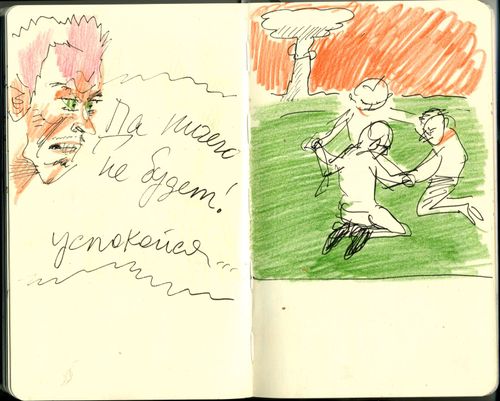 Да ничего
не будет!
успокойся...